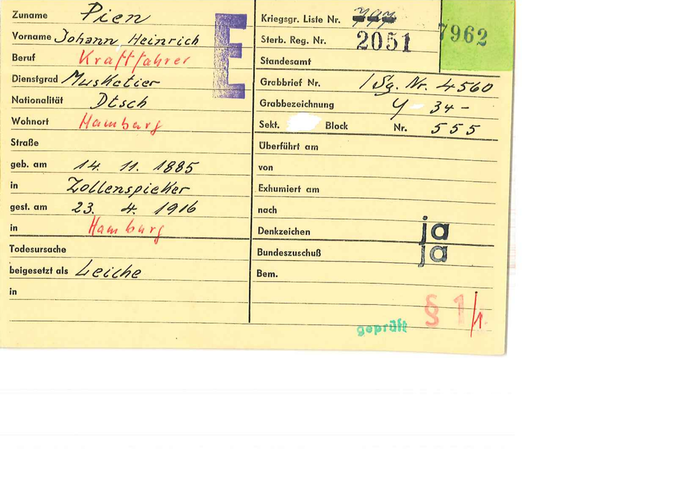 Zuname Pien
Vorname Johann Heinrich
Beruf Kraftfahrer
Dienstgrad Musketier
Nationalität Dtsch
Wohnort Hamburg
Straße
geb. am 14. 11. 1885
in Zollenspieker
gest. am 23. 4. 1916
in Hamburg
Todesursache
beigesetzt als Leiche
in
E
Kriegsgr. Liste Nr.
7962
Sterb. Reg. Nr. 2051
Standesamt
Grabbrief Nr. Nr. 4560
Grabbezeichnung Y 34 -
Sekt. Block Nr. 555
Überführt am
von
Exhumiert am
nach
Denkzeichen ja
Bundeszuschuß ja
Bem.
§ 1/1
geprüft